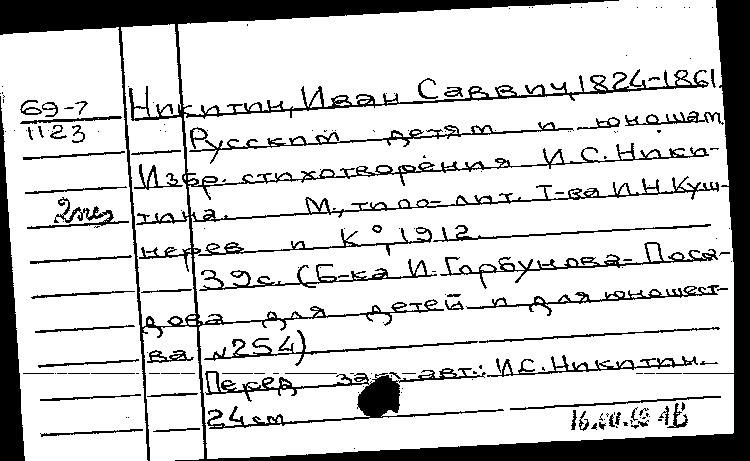 69-7
1123
2 экз
Никитин, Иван Саввич, 1824-1861.
Русским детям и юношам
Избр. стихотворения И.С. Ники-
тина. М., типо-лит. Т-ва И.Н. Куш-
нерев и К°, 1912.
39с. (Б-ка И. Горбунова-Поса-
дова для детей и для юношест-
ва №254)
Перед загл. авт.: И.С. Никитин.
24см